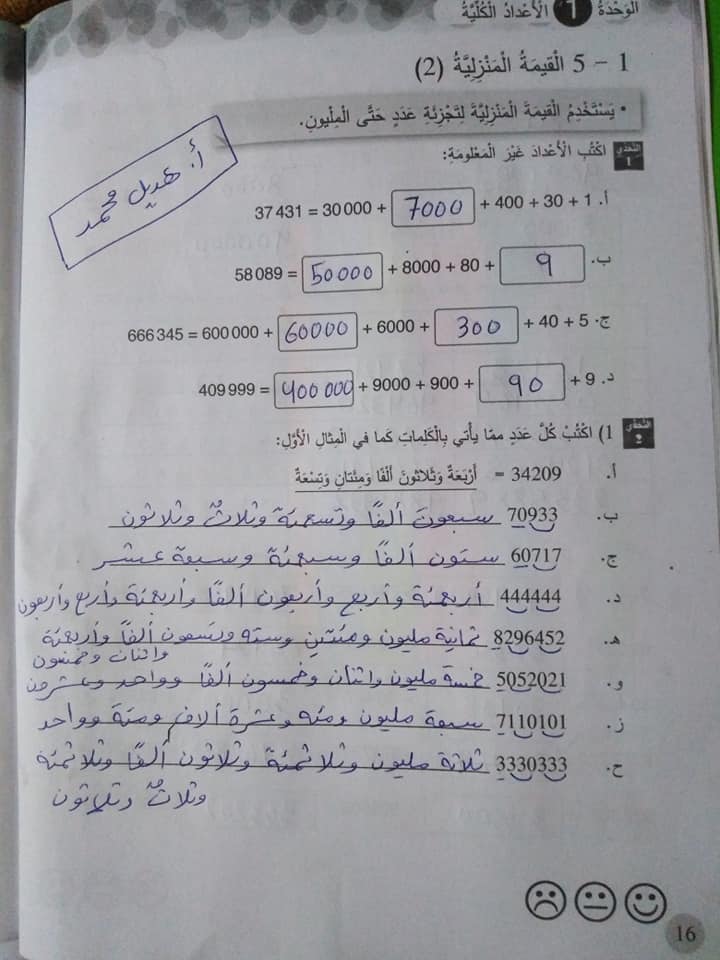 الوَحْدَةُ 1 الْأَعْدادُ الْكُلِّيَّةُ
1 - 5 الْقيمَةُ الْمَنْزِلِيَّةُ (2)
• يَسْتَخْدِمُ الْقيمَةَ الْمَنْزِلِيَّةَ لِتَجْزِئَةِ عَدَدٍ حَتَّى الْمِلْيونِ.
أ. هديل محمد
التَّحَدّي 1 اكْتُبِ الْأَعْدادَ غَيْرَ الْمَعْلومَةِ:
أ. 37 431 = 30 000 + 7000 + 400 + 30 + 1
ب. 58 089 = 50000 + 8000 + 80 + 9
ج. 666 345 = 600 000 + 60000 + 6000 + 300 + 40 + 5
د. 409 999 = 400 000 + 9000 + 900 + 90 + 9
التَّحَدّي 2 1) اكْتُبْ كُلَّ عَدَدٍ مِمّا يَأْتي بِالْكَلِماتِ كَما في الْمِثالِ الْأَوَّلِ:
أ. 34209 = أَرْبَعَةٌ وَثَلاثونَ أَلْفًا وَمِئَتانِ وَتِسْعَةٌ
ب. 70933 سبعون ألفًا وتسعمئة وثلاثٌ وثلاثون
ج. 60717 ستون ألفًا وسبعمئة وسبعة عشر
د. 444444 أربعمئة وأربع وأربعون ألفًا وأربعمئة وأربع وأربعون
هـ. 8296452 ثمانية مليون ومئتين وسته وتسعون ألفًا وأربعمئة
واثنان وخمسون
و. 5052021 خمسة مليون واثنان وخمسون ألفًا وواحد وعشرون
ز. 7110101 سبعة مليون ومئه وعشرة آلاف ومئة وواحد
ح. 3330333 ثلاثة مليون وثلاثمئة وثلاثون ألفًا وثلاثمئة
وثلاثٌ وثلاثون
16